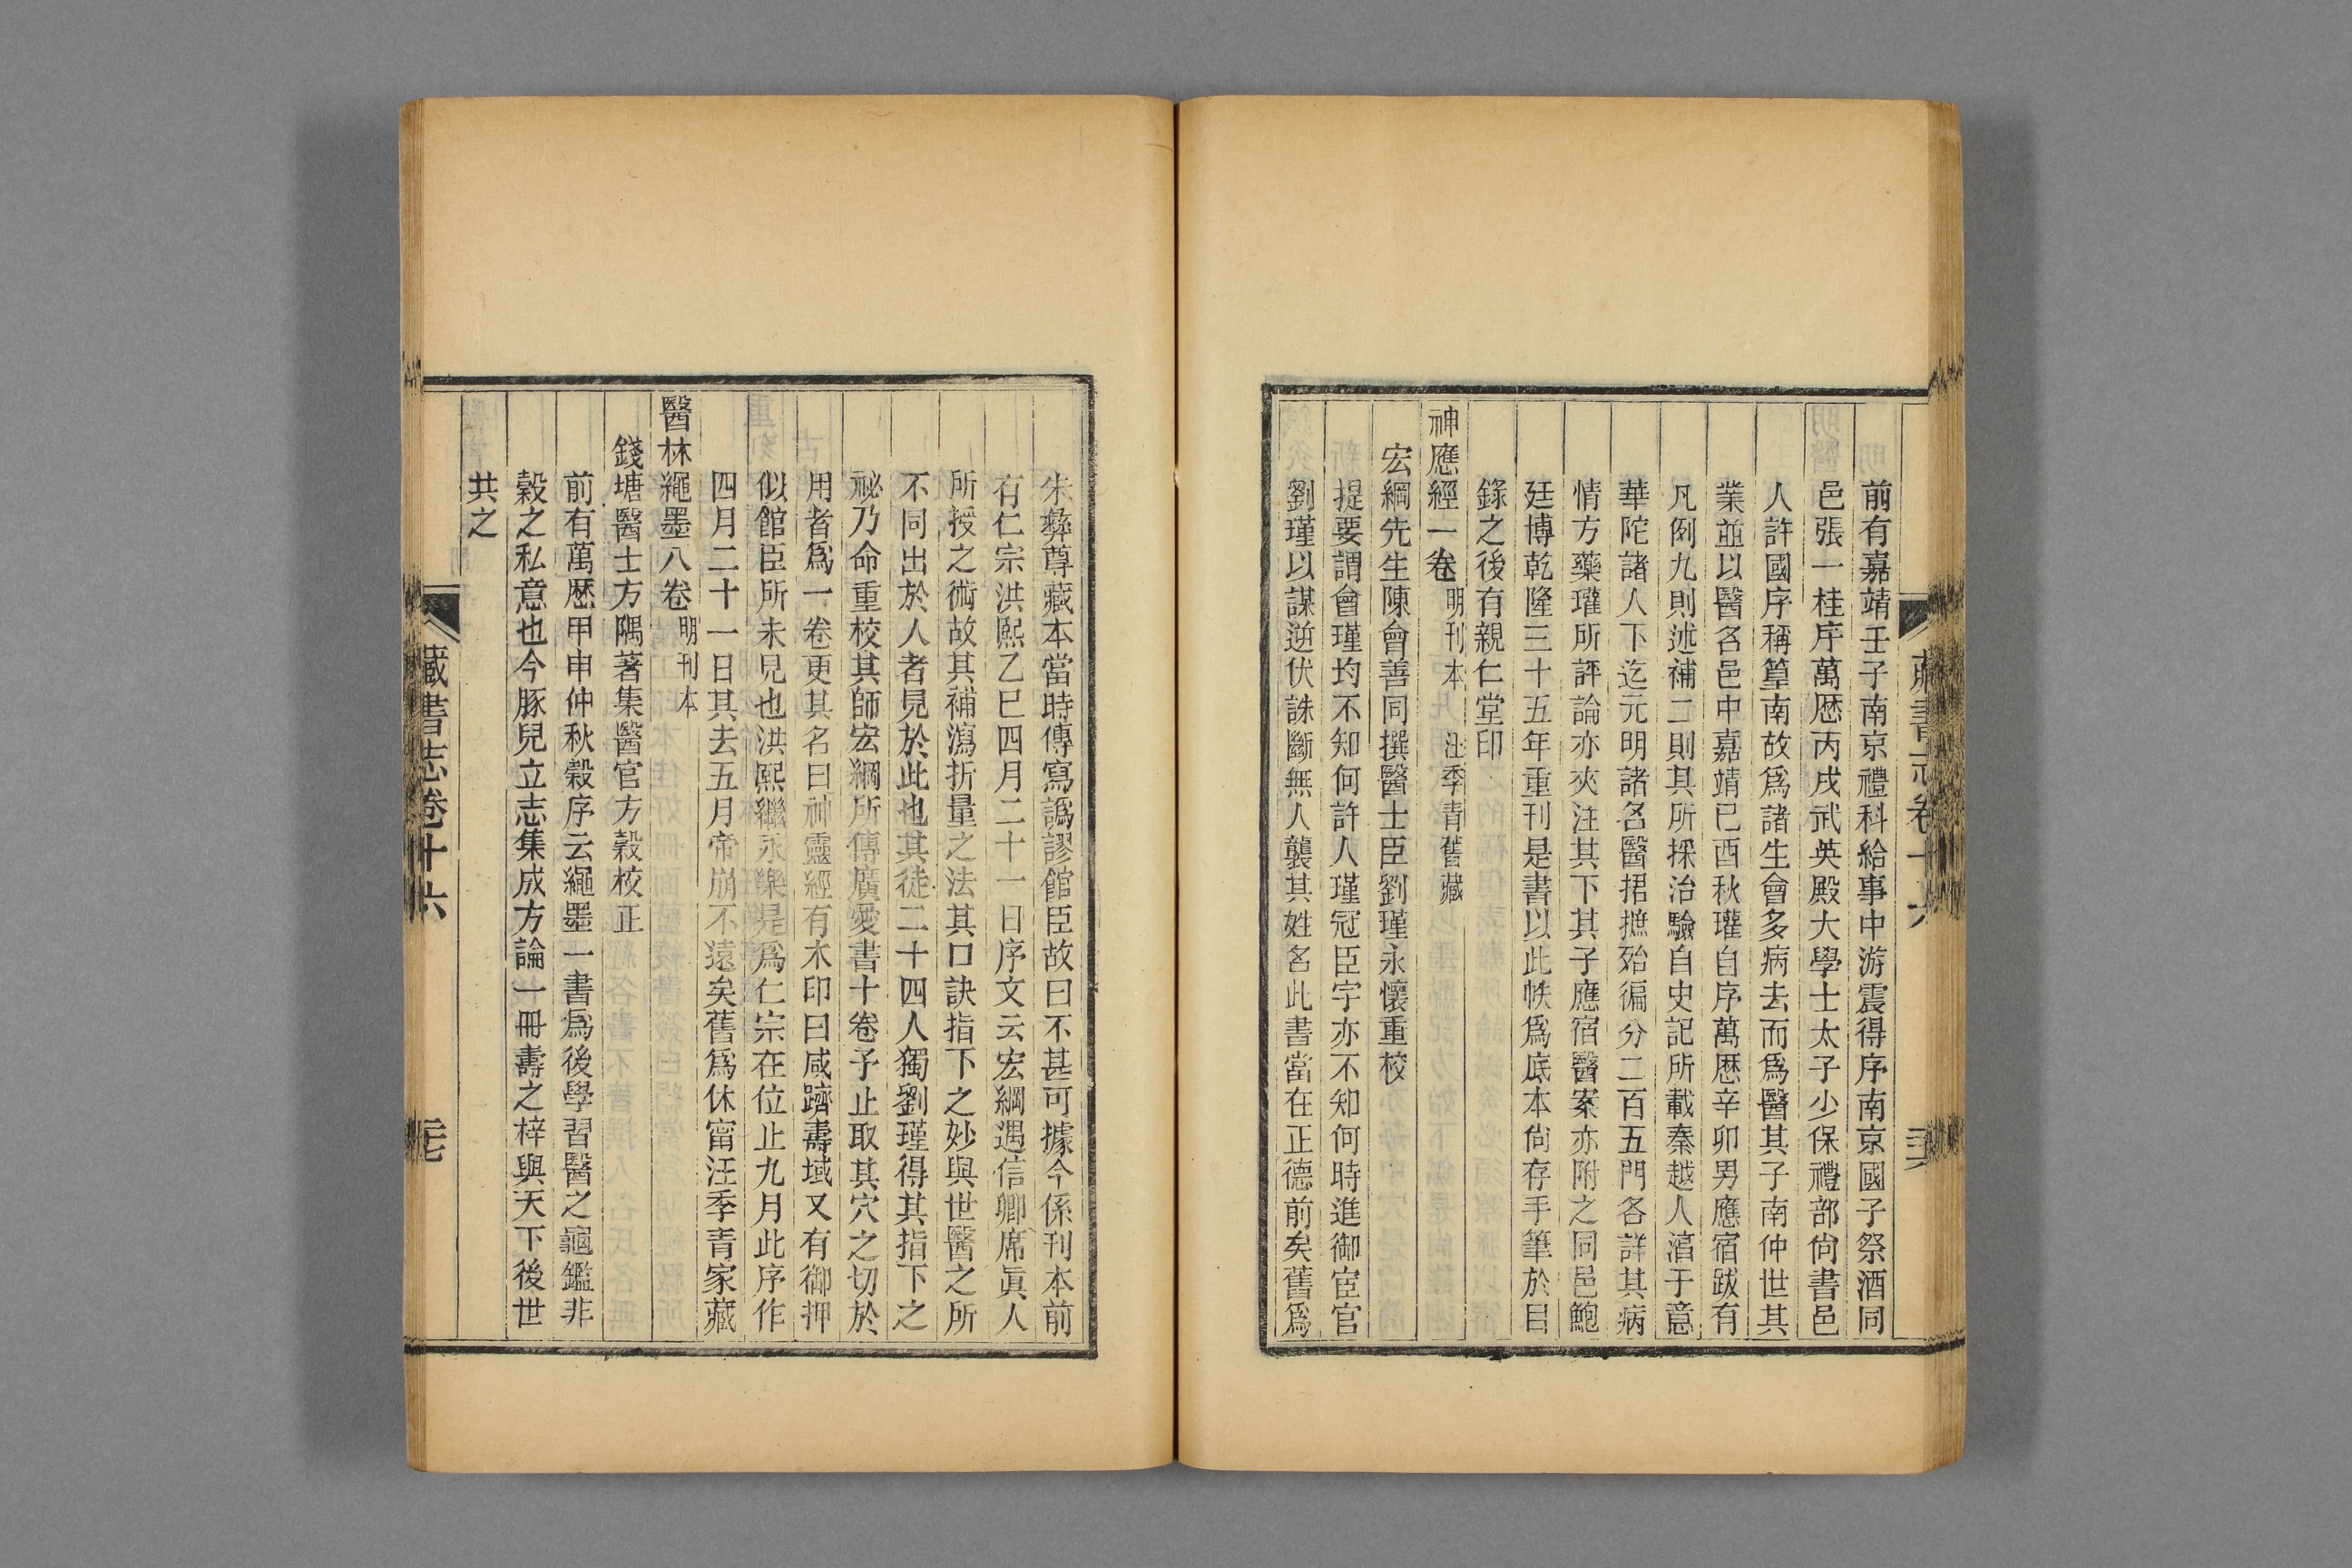 前有嘉靖壬子南京禮科給事中游震得序南京國子祭酒同
邑張一桂序萬厯丙戌武英殿大學士太子少保禮部尙書邑
人許國序稱篁南故爲諸生會多病去而爲醫其子南仲世其
業並以醫名邑中嘉靖己酉秋瓘自序萬厯辛卯男應宿跋有
凡例九則述補二則其所採治驗自史記所載秦越人湻于意
華陀諸人下迄元明諸名醫捃摭殆徧分二百五門各詳其病
情方藥瓘所評論亦夾注其下其子應宿醫案亦附之同邑鮑
廷博乾隆三十五年重刊是書以此帙爲底本尙存手筆於目
錄之後有親仁堂印
神應經一卷 明刊本 汪季青舊藏
宏綱先生陳會善同撰醫士臣劉瑾永懷重校
提要謂會瑾均不知何許人瑾冠臣宇亦不知何時進御宦官
劉瑾以謀逆伏誅斷無人襲其姓名此書當在正德前矣舊爲
藏書志卷十六
朱彝尊藏本當時傳寫譌謬館臣故曰不甚可據今係刊本前
有仁宗洪熙乙巳四月二十一日序文云宏綱遇信卿席眞人
所授之術故其補瀉折量之法其口訣指下之妙與世醫之所
不同出於人者見於此也其徒二十四人獨劉瑾得其指下之
祕乃命重校其師宏綱所傳廣愛書十卷予止取其穴之切於
用者爲一卷更其名曰神靈經有木印曰咸躋壽域又有御押
似館臣所未見也洪熙繼永樂是爲仁宗在位止九月此序作
四月二十一日其去五月帝崩不遠矣舊爲休甯汪季青家藏
醫林繩墨八卷 明刊本
錢塘醫士方隅著集醫官方穀校正
前有萬厯甲申仲秋穀序云繩墨一書爲後學習醫之龜鑑非
穀之私意也今豚兒立志集成方論一冊壽之梓與天下後世
共之
藏書志卷十六